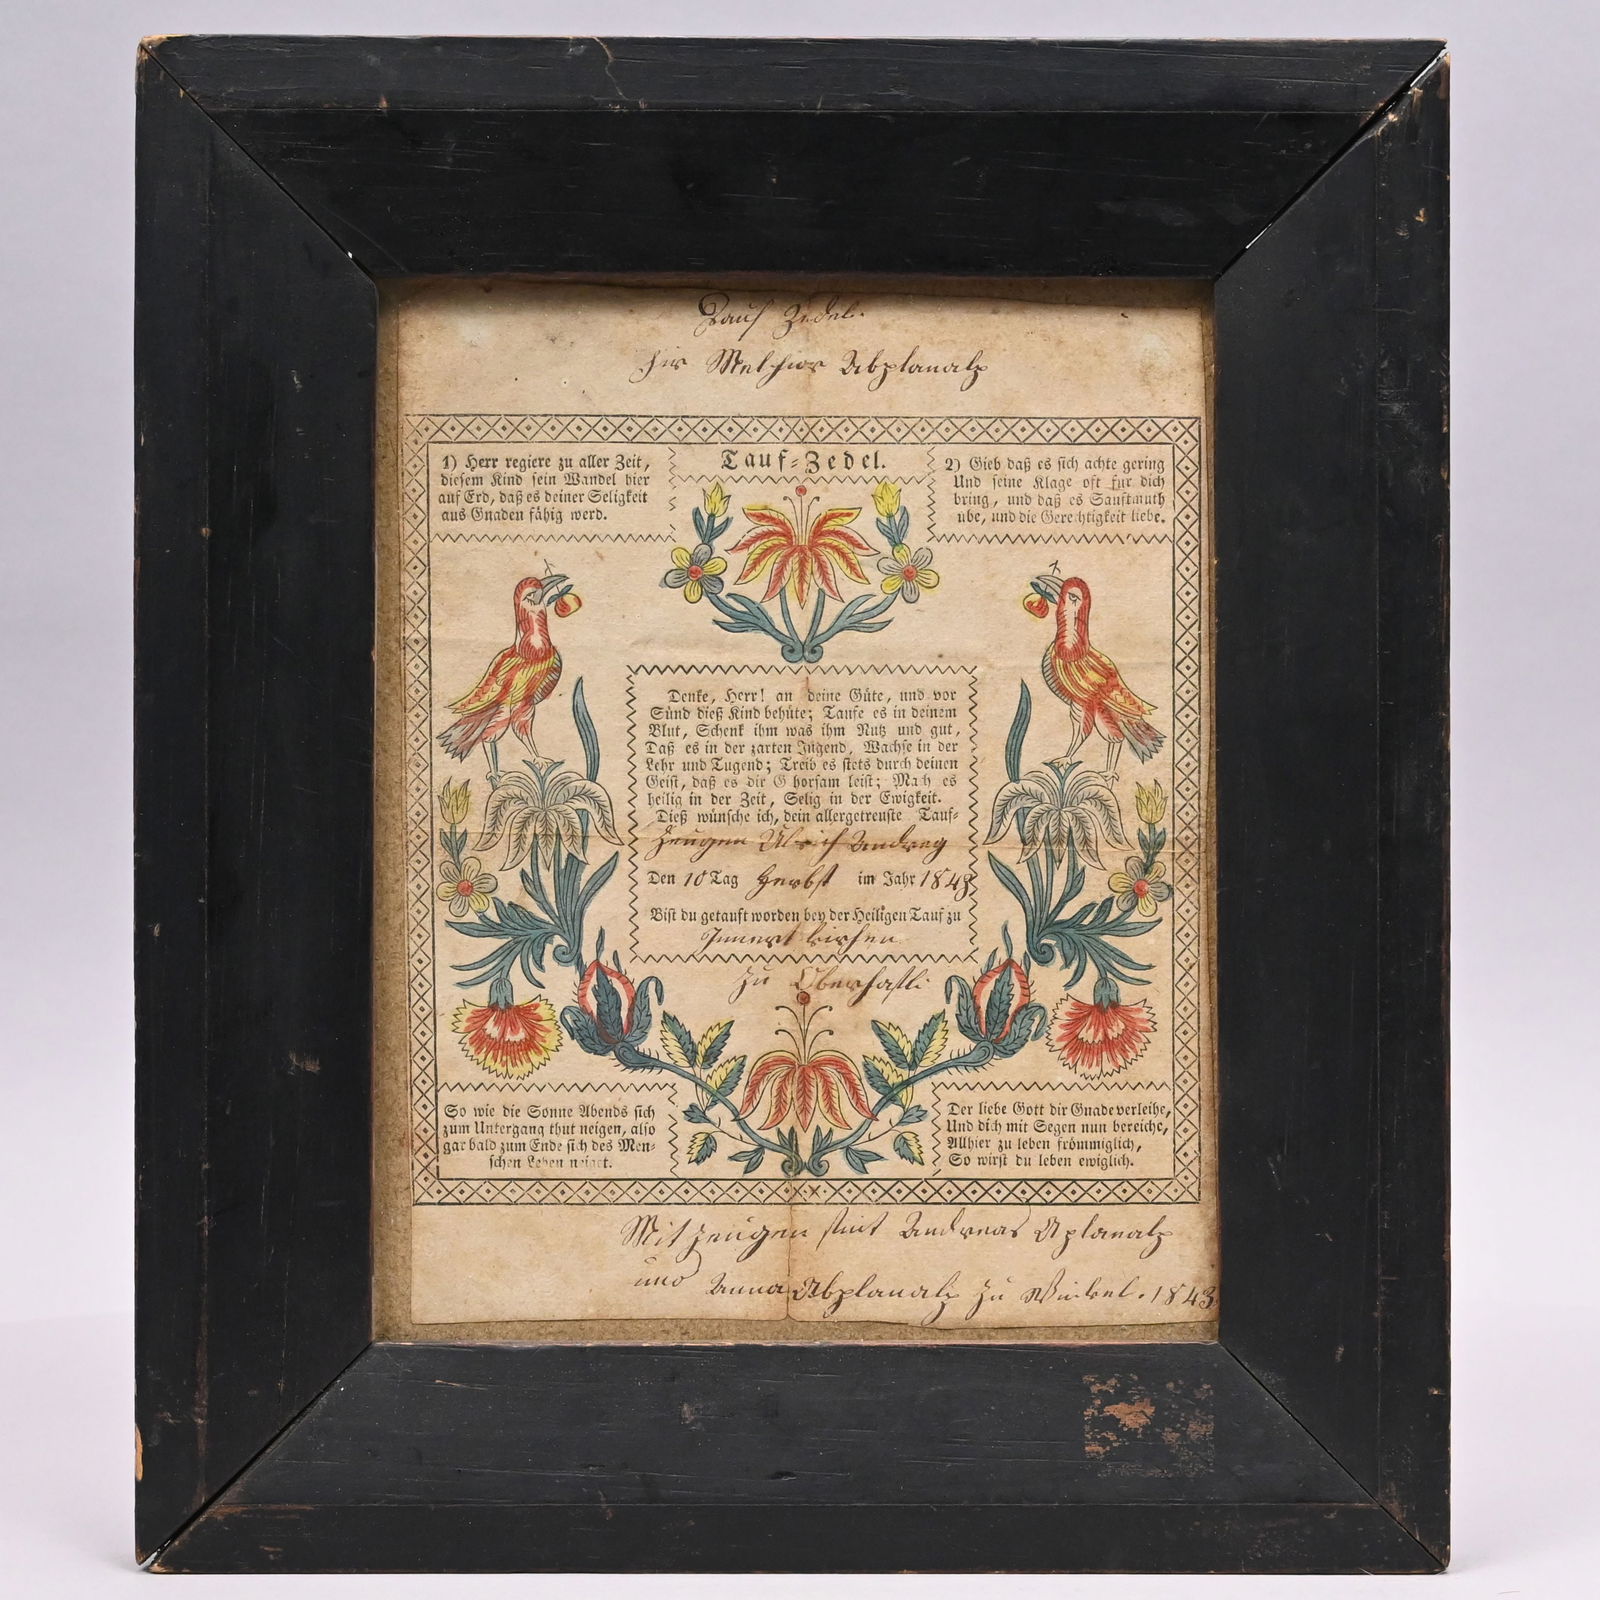 Tauf Zedel.
für Melchior Abplanalp
1) Herr regiere zu aller Zeit,
diesem Kind sein Wandel hier
auf Erd, daß es deiner Seligkeit
aus Gnaden fähig werd.
Tauf-Zedel.
2) Gieb daß es sich achte gering
Und seine Klage oft fur dich
bring, und daß es Sanftmuth
ube, und die Gerechtigkeit liebe.
Denke, Herr! an deine Güte, und vor
Sünd dieß Kind behüte; Taufe es in deinem
Blut, Schenk ihm was ihm Nutz und gut,
Daß es in der zarten Jugend, Wachse in der
Lehr und Tugend; Treib es stets durch deinen
Geist, daß es dir G horsam leist; Mach es
heilig in der Zeit, Selig in der Ewigkeit.
Dieß wünsche ich, dein allergetreuste Tauf-
Zeugen Ulrich Andreg
Den 10 Tag Herbst im Jahr 1843
Bist du getauft worden bey der Heiligen Tauf zu
Innertkirchen
zu Oberhasli
So wie die Sonne Abends sich
zum Untergang thut neigen, also
gar bald zum Ende sich des Men-
schen Leben neiget.
Der liebe Gott dir Gnade verleihe,
Und dich mit Segen nun bereiche,
Allhier zu leben frömmiglich,
So wirst du leben ewiglich.
Mit zeugen sint Andreas Aplanalp
und Anna Abplanalp zu Winkel. 1843